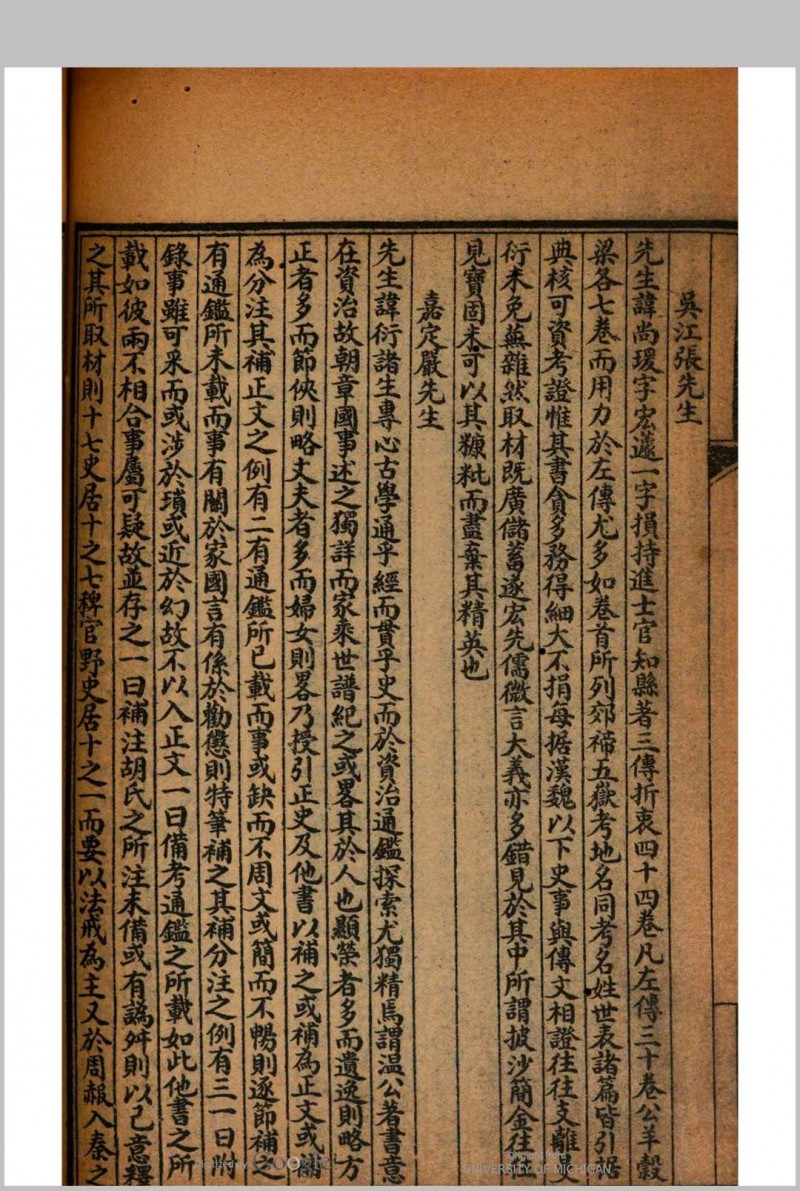 吳江張先生
先生諱尚瑗字宏蘧一字損持進士官知縣著三傳折衷四十四卷凡左傳三十卷公羊穀
梁各七卷而用力於左傳尤多如卷首所列郊禘五嶽考地名同考名姓世表諸篇皆引据
典核可資考證惟其書貪多務得細大不捐每据漢魏以下史事與傳文相證往往支離
衍未免蕪雜然取材既廣儲蓄遂宏先儒微言大義亦多錯見於其中所謂披沙簡金往往
見寶固未可以其糠粃而盡棄其精英也
嘉定嚴先生
先生諱衍諸生專心古學通乎經而貫乎史而於資治通鑑探索尤獨精焉謂温公著書意
在資治故朝章國事述之獨詳而家乘世譜紀之或畧其於人也顯榮者多而遺逸則略方
正者多而節俠則略丈夫者多而婦女則畧乃援引正史及他書以補之或補為正文或
為分注其補正文之例有二有通鑑所已載而事或缺而不周文或簡而不暢則逐節補之
有通鑑所未載而事有關於家國言有係於勸懲則特筆補之其補分注之例有三一曰附
錄事雖可采而或涉於瑣或近於幻故不以入正文一曰備考通鑑之所載如此他書之所
載如彼兩不相合事屬可疑故並存之一曰補注胡氏之所注未備或有譌舛則以己意釋
之其所取材則十七史居十之七稗官野史居十之一而要以法戒為主又於周赧入秦之
Digitized by Google
Original from
UNIVERSITY OF MICHIGAN